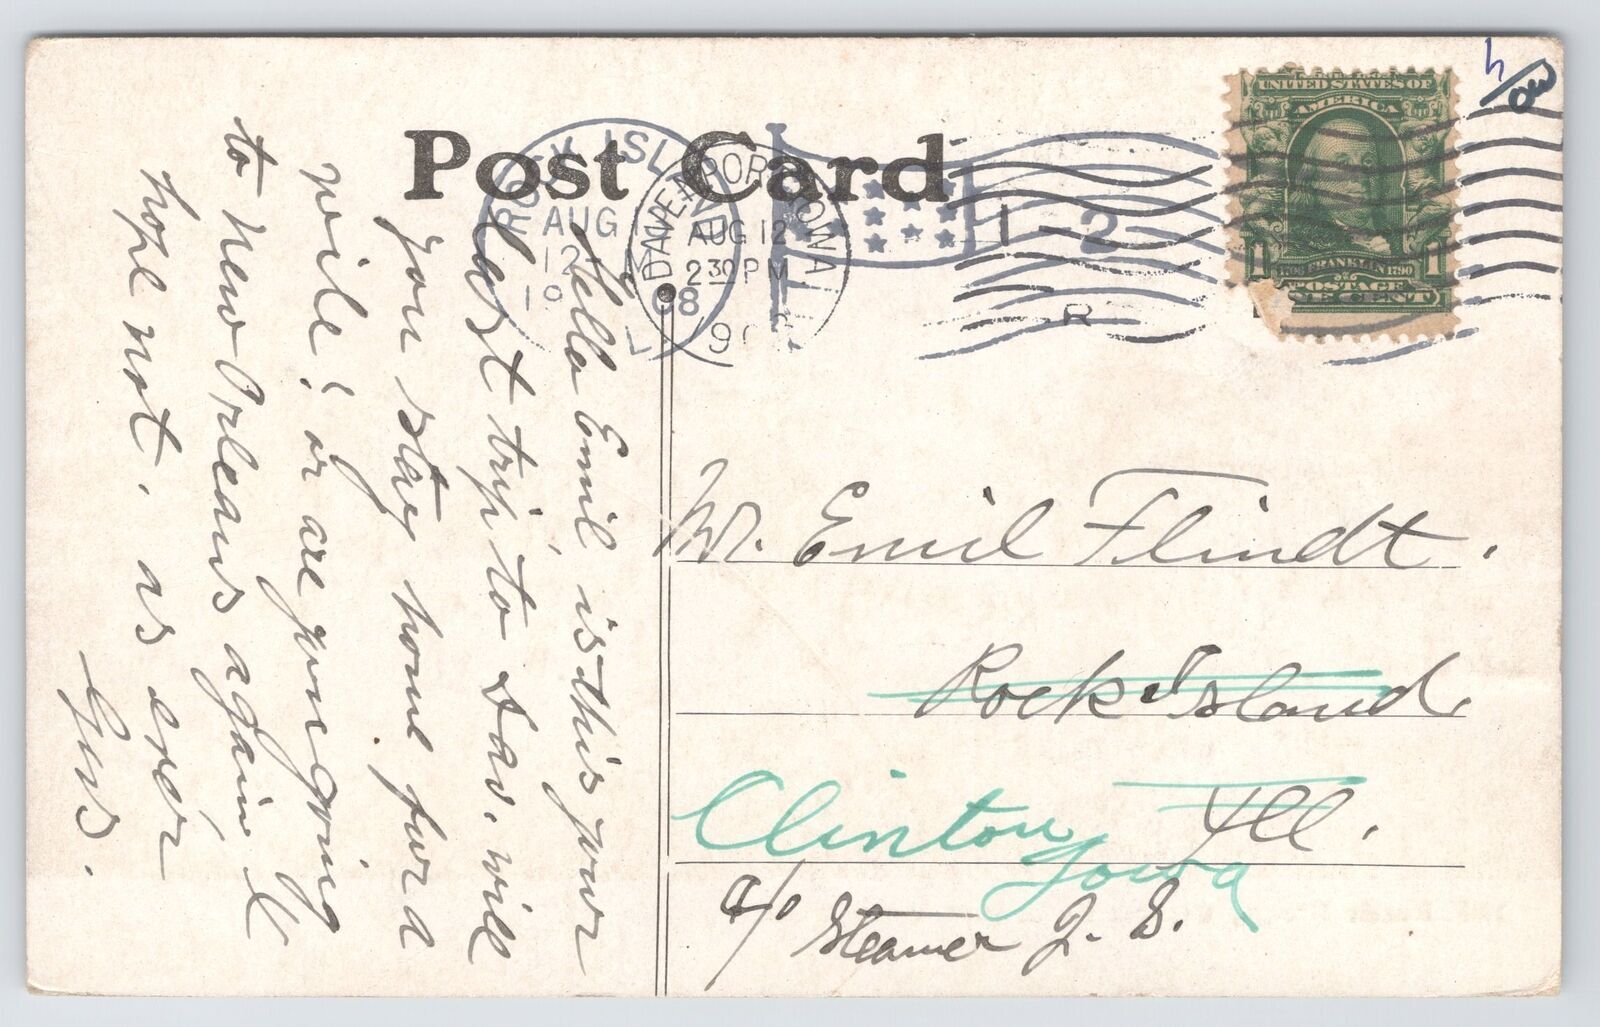 Post Card
ROCK ISLAND
AUG
12
19 08
L
DAVENPORT IOWA
AUG 12
2 30 PM
190
1
2
R
UNITED STATES OF
AMERICA
1706 FRANKLIN 1790
1 1
POSTAGE
ONE CENT
Hello Emil is this your
last trip to Dav. will
you stay home for a
while? or are you going
to New Orleans again I
hope not. as ever
Gus.
Mr. Emil Flindt.
Rock Island.
Ill.
Clinton
Iowa
c/o Steamer J. S.